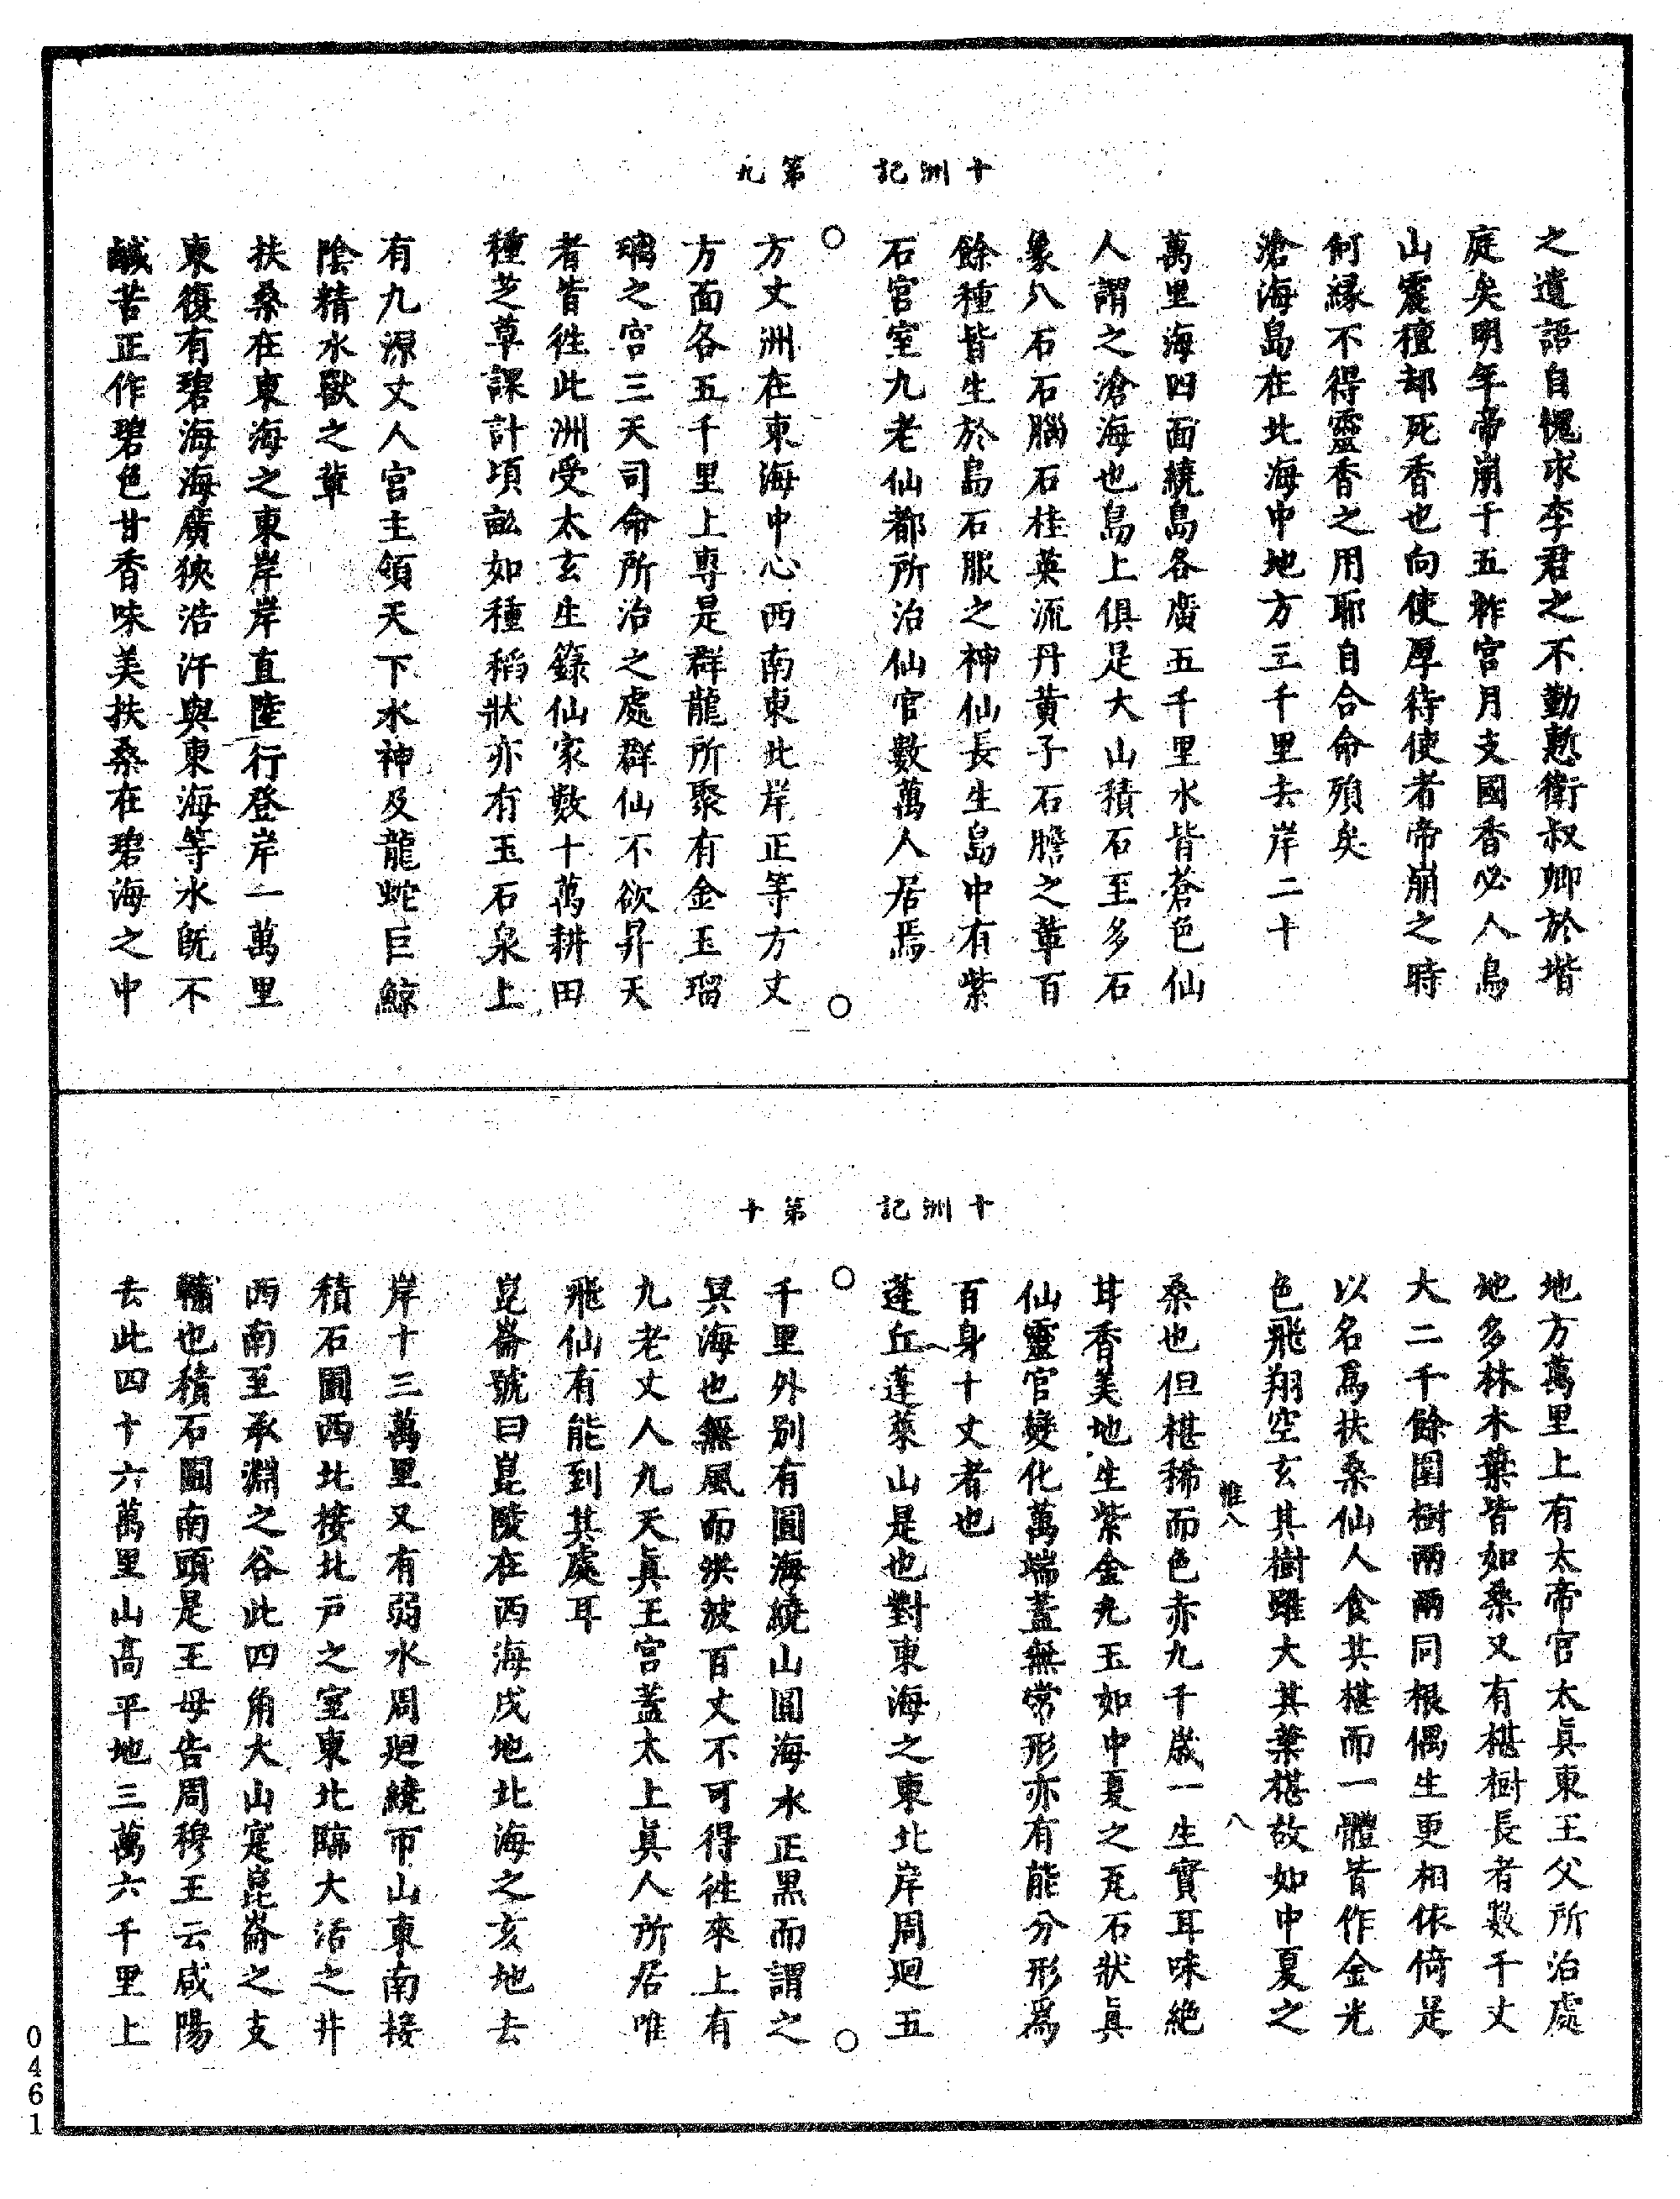 十洲記　第九
之遺語自愧求李君之不勤慙衛叔卿於堦
庭矣明年帝崩于五柞宮月支國香必人鳥
山震檀却死香也向使厚待使者帝崩之時
何緣不得靈香之用耶自合命殞矣
滄海島在北海中地方三千里去岸二十
萬里海四面繞島各廣五千里水皆蒼色仙
人謂之滄海也島上俱是大山積石至多石
象八石石腦石桂英流丹黃子石膽之輩百
餘種皆生於島石服之神仙長生島中有紫
石宮室九老仙都所治仙官數萬人居焉
方丈洲在東海中心西南東北岸正等方丈
方面各五千里上專是群龍所聚有金玉瑠
璃之宮三天司命所治之處群仙不欲昇天
者皆徃此洲受太玄生籙仙家數十萬耕田
種芝草課計頃畝如種稻狀亦有玉石泉上
有九源丈人宮主領天下水神及龍蛇巨鯨
陰精水獸之輩
扶桑在東海之東岸岸直陸行登岸一萬里
東復有碧海海廣狹浩汗與東海等水既不
鹹苦正作碧色甘香味美扶桑在碧海之中
十洲記　第十
地方萬里上有太帝宮太眞東王父所治處
地多林木葉皆如桑又有椹樹長者數千丈
大二千餘圍樹兩兩同根偶生更相依倚是
以名爲扶桑仙人食其椹而一體皆作金光
色飛翔空玄其樹雖大其葉椹故如中夏之
惟八　八
桑也但椹稀而色赤九千歲一生實耳味絕
甘香美地生紫金丸玉如中夏之瓦石狀眞
仙靈官變化萬端蓋無常形亦有能分形爲
百身十丈者也
蓬丘蓬萊山是也對東海之東北岸周廻五
千里外別有圓海繞山圓海水正黑而謂之
冥海也無風而洪波百丈不可得徃來上有
九老丈人九天眞王宮蓋太上眞人所居唯
飛仙有能到其處耳
崑崙號曰崑陵在西海戌地北海之亥地去
岸十三萬里又有弱水周廻繞帀山東南接
積石圃西北接北戶之室東北臨大活之井
西南至承淵之谷此四角大山寔崑崙之支
輔也積石圃南頭是王母告周穆王云咸陽
去此四十六萬里山高平地三萬六千里上
0461